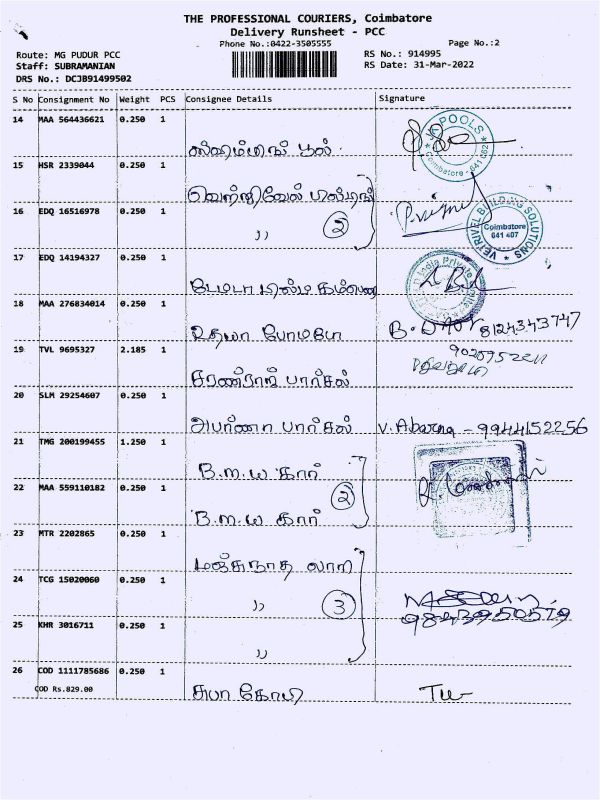 THE PROFESSIONAL COURIERS, Coimbatore
Delivery Runsheet - PCC
Phone No.:0422-3505555
Page No.:2
Route: MG PUDUR PCC
RS No.: 914995
Staff: SUBRAMANIAN
RS Date: 31-Mar-2022
DRS No.: DCJB91499502
S No Consignment No Weight PCS Consignee Details Signature
14 MAA 564436621 0.250 1
POOLS
Coimbatore - 641 002
ஸ்விம்மிங் பூல்
15 HSR 2339044 0.250 1
வெற்றிவேல் பில்டிங்
16 EDQ 16516978 0.250 1
VETRIVEL BUILDING SOLUTIONS
Coimbatore
641 407
,, 2
17 EDQ 14194327 0.250 1
India Private
18 MAA 276834014 0.250 1
8124343747
19 TVL 9695327 2.185 1
சரண்ராஜ் பார்சல்
20 SLM 29254607 0.250 1
அபர்ணா பார்சல் V. Abarna - 9944152256
21 TMG 200199455 1.250 1
B.m.w கார்
22 MAA 559110182 0.250 1
2
B.m.w கார்
23 MTR 2202865 0.250 1
மஞ்சுநாத லாரி
24 TCG 15020060 0.250 1
,, 3
9843950579
25 KHR 3016711 0.250 1
,,
26 COD 1111785686 0.250 1
COD Rs.829.00
சுபா கோபி